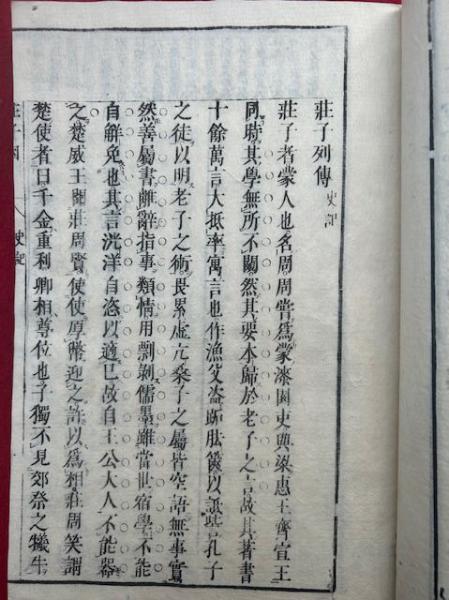 莊子列傳 史記
莊子者蒙人也名周周嘗爲蒙漆園吏與梁惠王齊宣王
同時其學無所不闚然其要本歸於老子之言故其著書
十餘萬言大抵率寓言也作漁父盜跖胠篋以詆訾孔子
之徒以明老子之術畏累虛亢桑子之屬皆空語無事實
然善屬書離辭指事類情用剽剝儒墨雖當世宿學不能
自解免也其言洸洋自恣以適己故自王公大人不能器
之楚威王聞莊周賢使使厚幣迎之許以爲相莊周笑謂
楚使者曰千金重利卿相尊位也子獨不見郊祭之犧牛
莊子因 史記